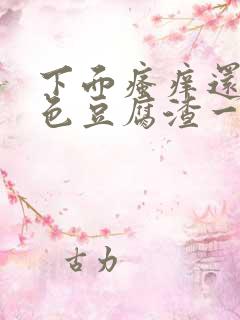 下面瘙痒還
色豆腐渣一
古力